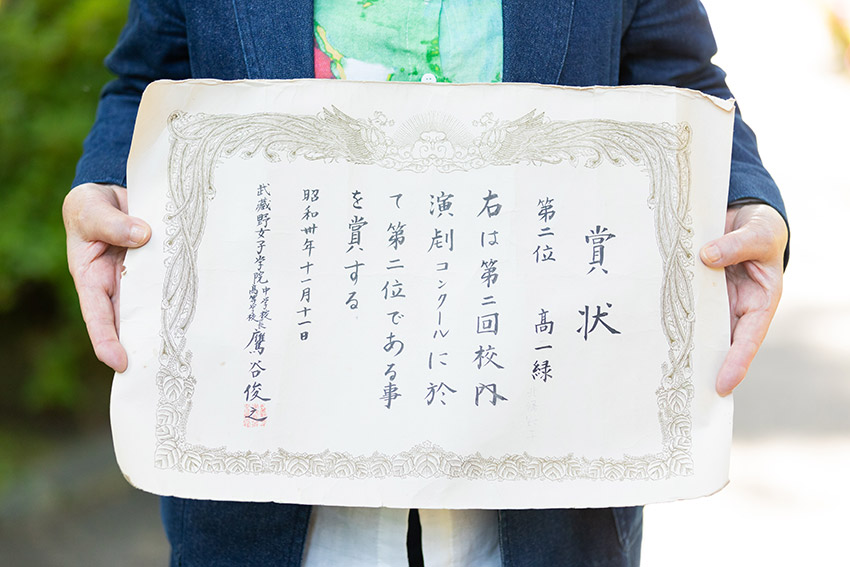 賞状
第二位　高一緑
右は第二回校内
演劇コンクールに於
て第二位である事
を賞する
昭和卅年十一月十一日
武蔵野女子学院中学校長
高等学校
鷹谷俊之